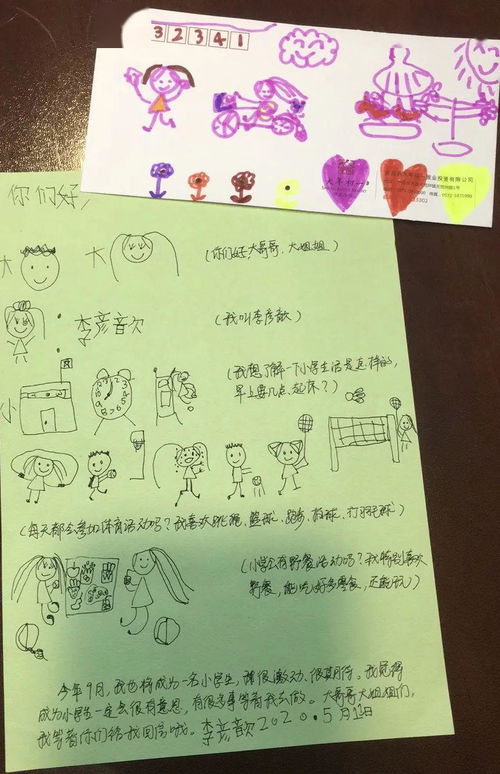 32341
你们好,
大 大 (你们好大哥哥、大姐姐)
李彦歆 (我叫李彦歆)
(我想了解一下小学生活是怎样的,
早上要几点起床?)
小
(每天都会参加体育活动吗?我喜欢跳绳、篮球、跑步、拍球、打羽毛球)
(小学会有野餐活动吗?我特别喜欢
野餐,能吃好多零食,还能玩)
今年9月,我也将成为一名小学生,我很激动、很期待。我觉得
成为小学生一定会很有意思,有很多事等着我去做。大哥哥大姐姐们,
我等着你们给我回信哦。李彦歆2020.5月13日